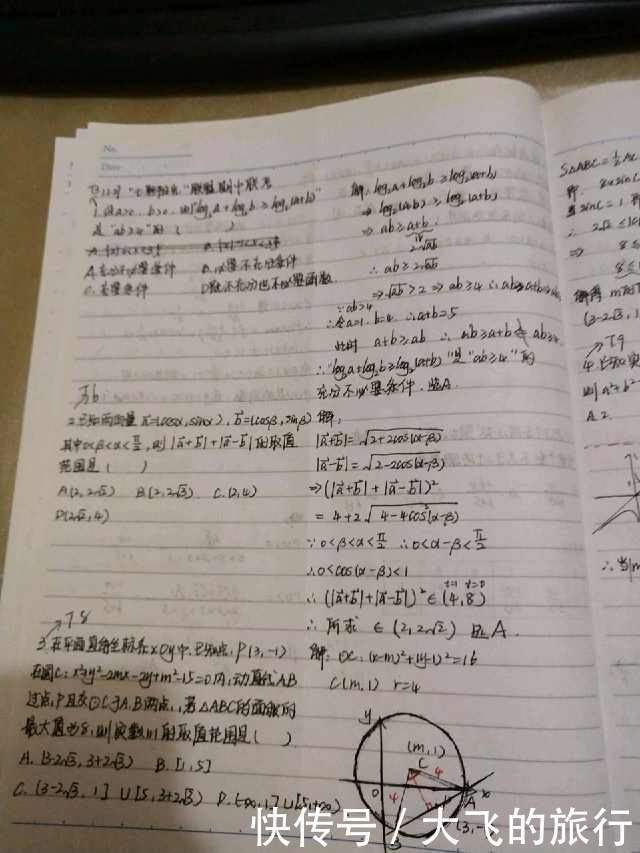 No.
Date
1. 设a>0, b>0, 则"log₂a+log₂b≥log₂(a+b)"
是"ab≥4"的 ( )
A.充分不必要条件 B.必要不充分条件
C.充要条件 D.既不充分也不必要条件
解: log₂a+log₂b≥log₂(a+b)
⇒ log₂(ab)≥log₂(a+b)
⇒ ab≥a+b
2√ab
∴ ab≥2√ab
⇒√ab≥2 ⇒ab≥4
∵ab≥4
∴令a=1, b=4 ∴a+b=5
此时 a+b≥ab ∴ ab≥a+b
∴"log₂a+log₂b≥log₂(a+b)"是"ab≥4"的
充分不必要条件. 选A.
T6
2.已知两向量 a=(cosα, sinα), b=(cosβ, sinβ)
其中0<β<α<π/2, 则|a+b|+|a-b|的取值
范围是 ( )
A.(2, 2√2) B.(2, 2√3) C.(2, 4)
D.(2√2, 4)
解:
|a+b|=√2+2cos(α-β)
|a-b|=√2-2cos(α-β)
⇒(|a+b|+|a-b|)²
= 4+2√4-4cos²(α-β)
∵0<β<α<π/2 ∴0<α-β<π/2
∴0<cos(α-β)<1
∴ (|a+b|+|a-b|)²∈(4, 8)
∴ 所求 ∈(2, 2√2) 选A.
T8
3.在平面直角坐标系xOy中, 已知点P(3, -1)
在圆C: x²+y²-2mx-2y+m²-15=0内, 动直线AB
过点P且交⊙C于A.B两点, 若△ABC的面积的
最大值为8, 则实数m的取值范围是 ( )
A. (3-2√3, 3+2√3) B. [1, 5]
C. (3-2√3, 1]∪[5, 3+2√3) D. (-∞, 1]∪[5, +∞)
解: ⊙C: (x-m)²+(y-1)²=16
C(m, 1) r=4
y
(m, 1)
C
4
4
O
A
x
B
(3, -
S△ABC=½AC
即:
⇒
T9
4.已知实
则a²+b²
A. 2
快传号 / 大飞的旅行